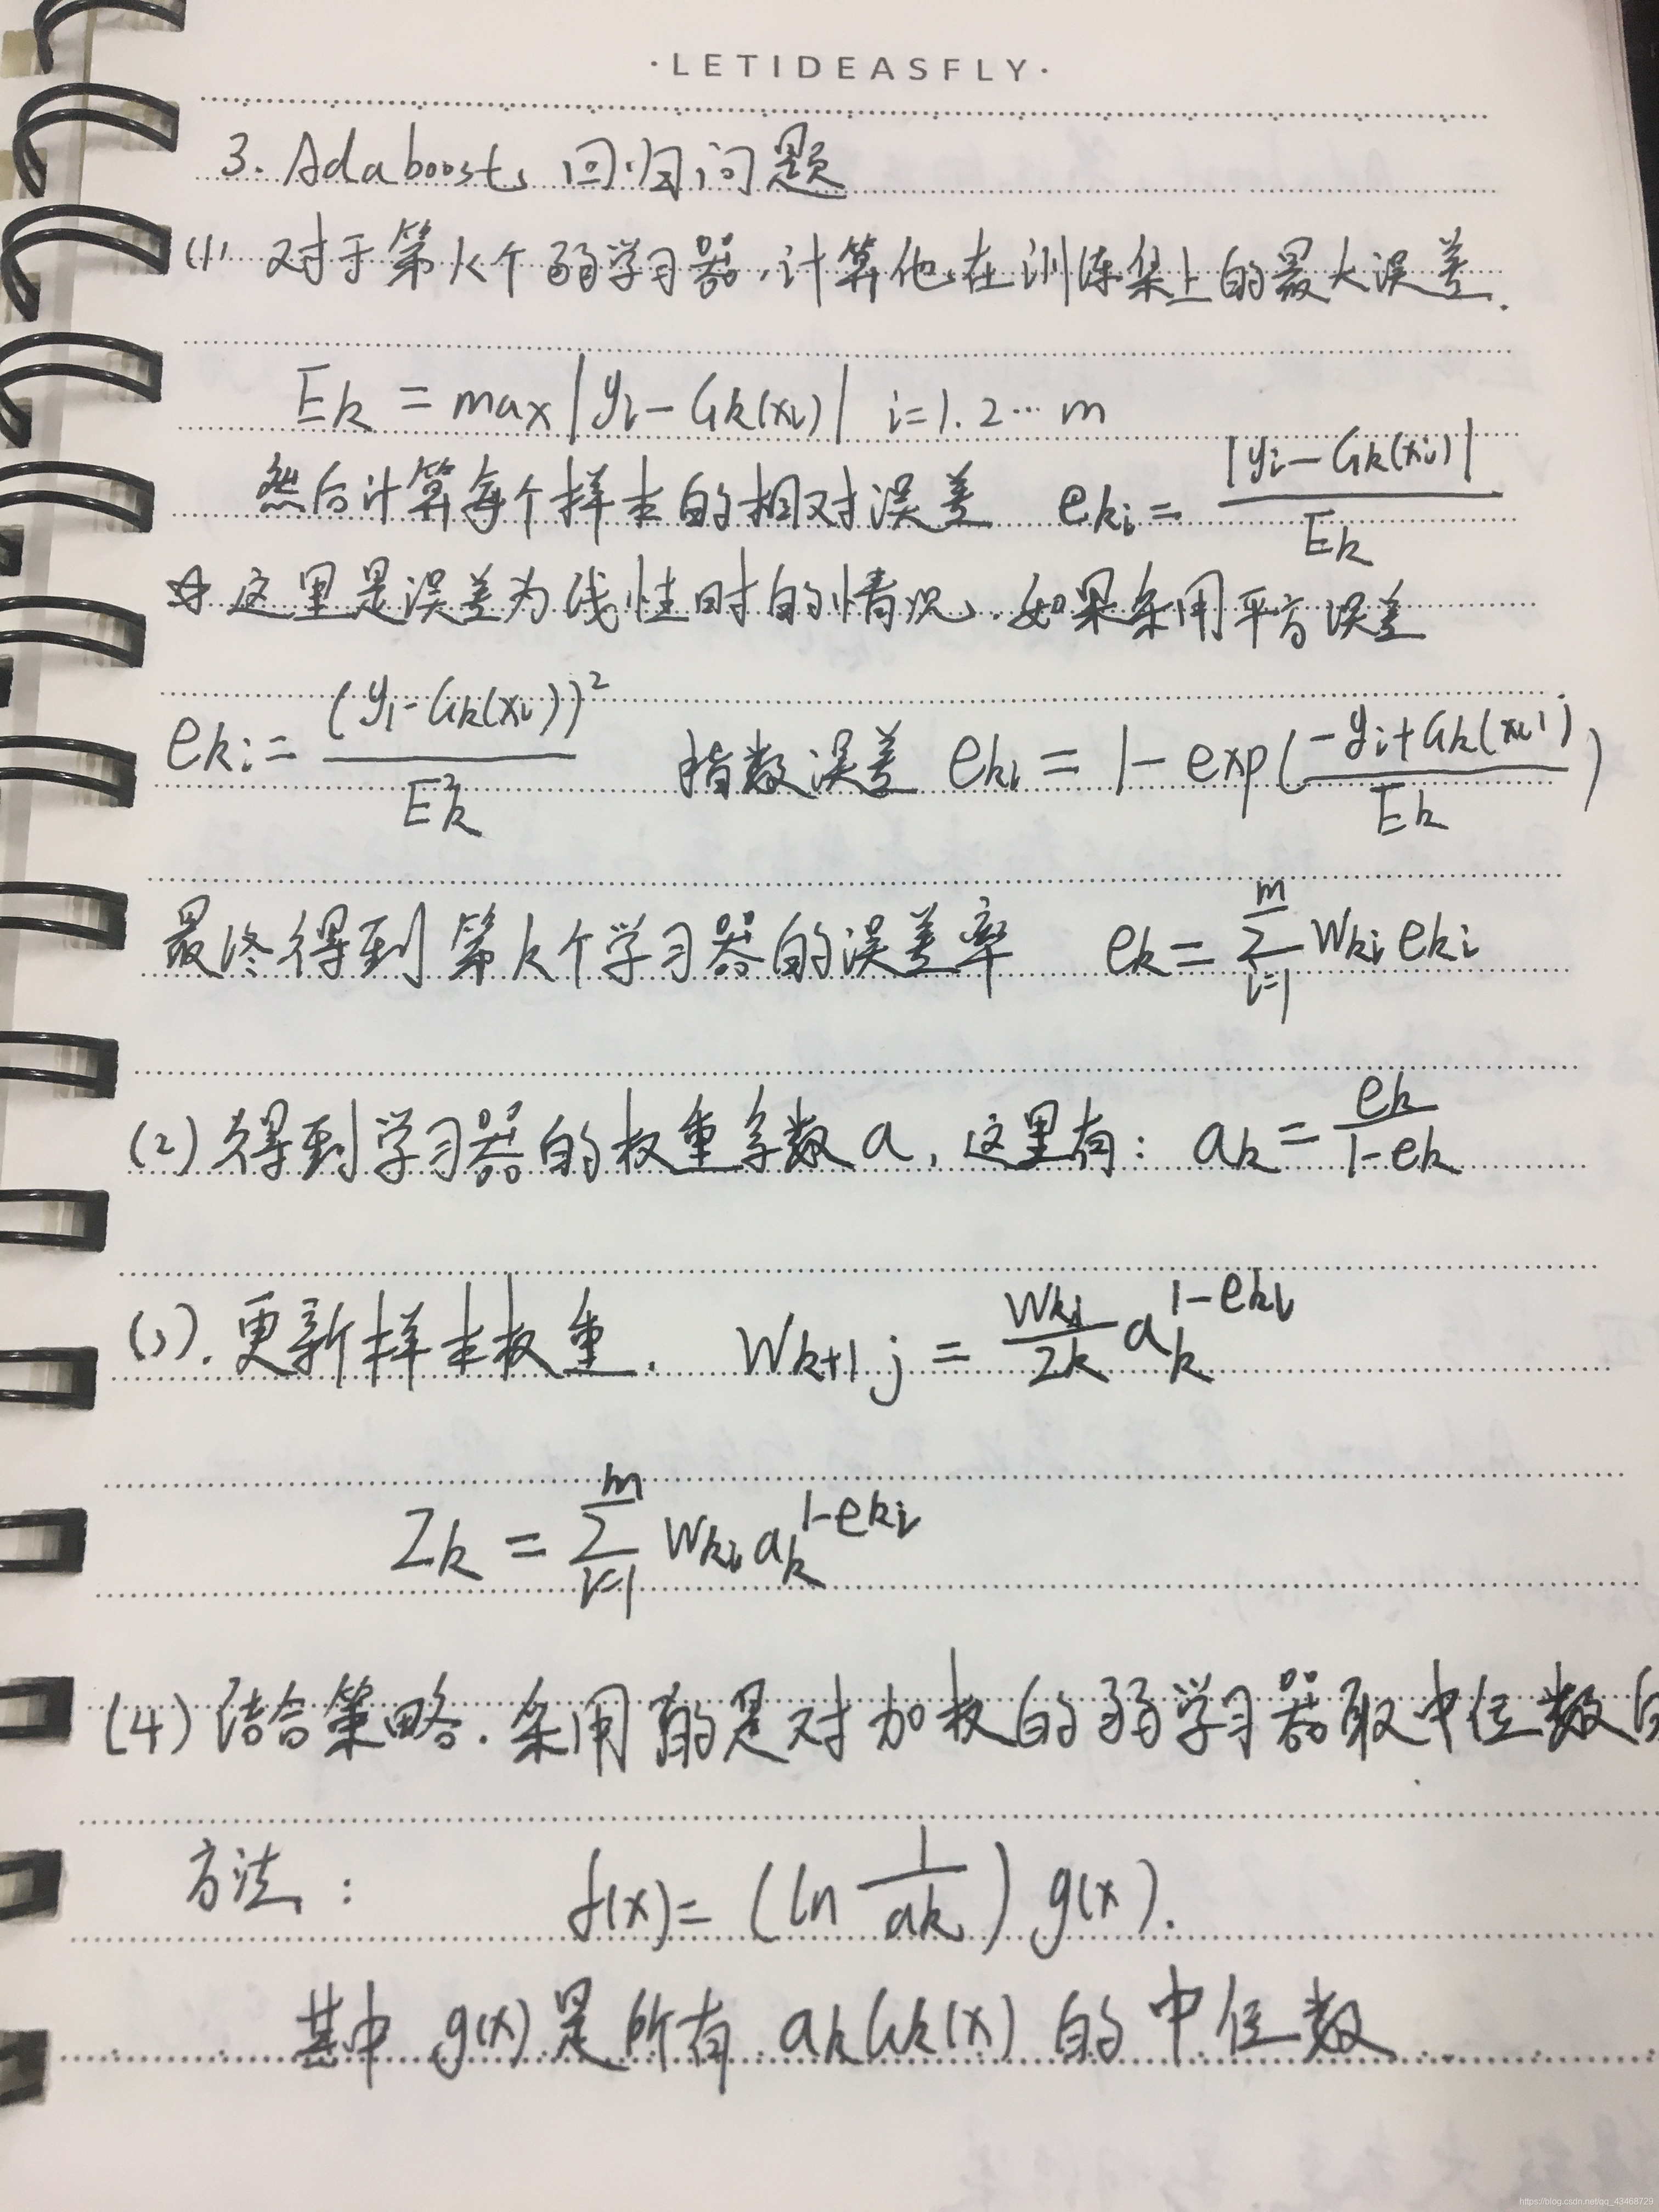 ·LETIDEASFLY·
3. Adaboost, 回归问题
(1) 对于第k个弱学习器,计算他在训练集上的最大误差.
Ek = max|yi-Gk(xi)| i=1.2…m
然后计算每个样本的相对误差 eki = |yi-Gk(xi)| / Ek
☆这里是误差为线性时的情况,如果采用平方误差
eki = (yi-Gk(xi))² / E²k 指数误差 eki = 1-exp(-yi+Gk(xi) / Ek)
最终得到第k个学习器的误差率 ek = Σ(i=1→m) wki eki
(2) 得到学习器的权重系数a, 这里有: ak = ek / 1-ek
(3). 更新样本权重. Wk+1 j = wki / Zk ak^1-eki
Zk = Σ(i=1→m) wki ak^1-eki
(4) 结合策略.采用的是对加权的弱学习器取中位数的
方法: f(x) = (ln 1/ak) g(x).
其中 g(x) 是所有 akGk(x) 的中位数
https://blog.csdn.net/qq_43468729